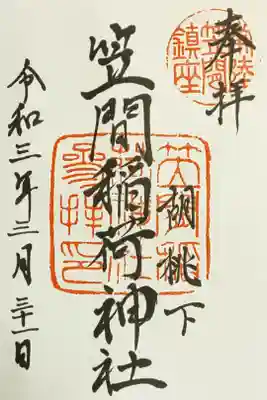 奉拝
笠間
鎮座
胡桃下
笠間稲荷神社
令和三年三月三十一日